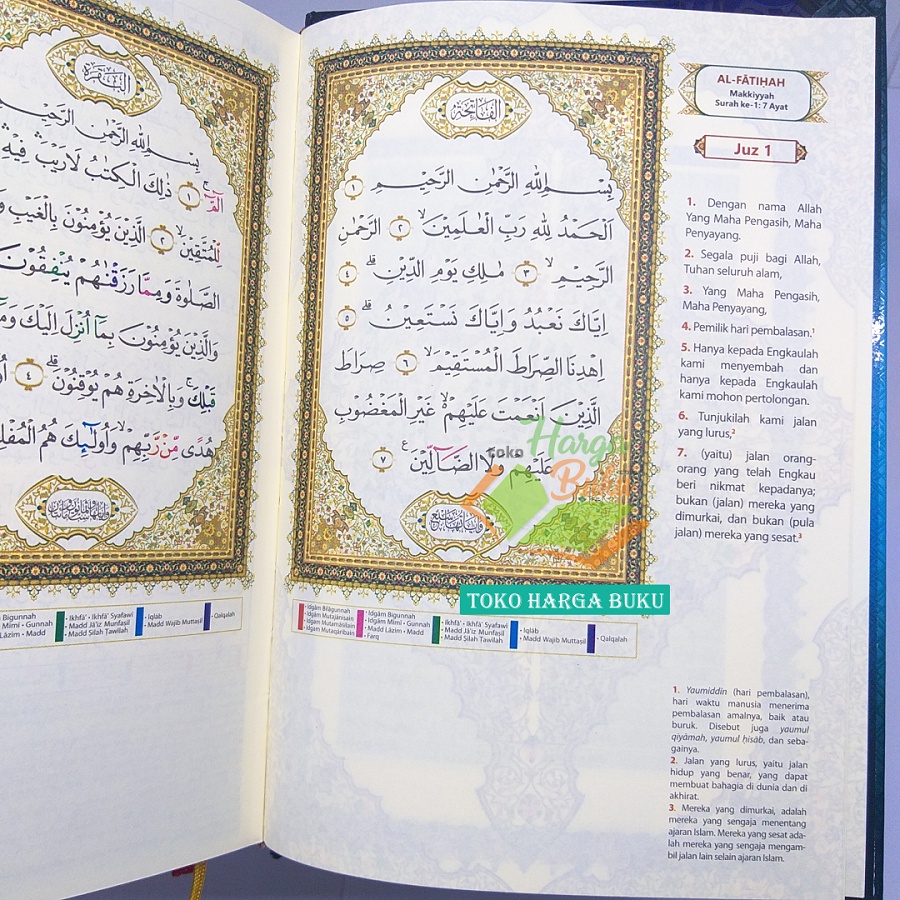 الفاتحة
بِسْمِ اللّٰهِ الرَّحْمٰنِ الرَّحِيْمِ ١
اَلْحَمْدُ لِلّٰهِ رَبِّ الْعٰلَمِيْنَۙ ٢ الرَّحْمٰنِ
الرَّحِيْمِۙ ٣ مٰلِكِ يَوْمِ الدِّيْنِۗ ٤
اِيَّاكَ نَعْبُدُ وَاِيَّاكَ نَسْتَعِيْنُۗ ٥
اِهْدِنَا الصِّرَاطَ الْمُسْتَقِيْمَۙ ٦ صِرَاطَ
الَّذِيْنَ اَنْعَمْتَ عَلَيْهِمْۙ غَيْرِ الْمَغْضُوْبِ
عَلَيْهِمْ وَلَا الضَّاۤلِّيْنَࣖ ٧
Toko Harga
Buku
TOKO HARGA BUKU
• Idgām Bilāgunnah
• Idgām Mutajānisain
• Idgām Mutamāṡilain
• Idgām Mutaqāribain
• Idgām Bigunnah
• Idgām Mīmī • Gunnah
• Madd Lāzim • Madd
• Farq
• Ikhfā' • Ikhfā' Syafawī
• Madd Jā'iz Munfaṣil
• Madd Ṣilah Ṭawīlah
• Iqlāb
• Madd Wājib Muttaṣil
• Qalqalah
AL-FĀTIḤAH
Makkiyyah
Surah ke-1: 7 Ayat
Juz 1
1. Dengan nama Allah
Yang Maha Pengasih, Maha
Penyayang.
2. Segala puji bagi Allah,
Tuhan seluruh alam,
3. Yang Maha Pengasih,
Maha Penyayang,
4. Pemilik hari pembalasan.¹
5. Hanya kepada Engkaulah
kami menyembah dan
hanya kepada Engkaulah
kami mohon pertolongan.
6. Tunjukilah kami jalan
yang lurus,²
7. (yaitu) jalan orang-
orang yang telah Engkau
beri nikmat kepadanya;
bukan (jalan) mereka yang
dimurkai, dan bukan (pula
jalan) mereka yang sesat.³
1. Yaumiddin (hari pembalasan),
hari waktu manusia menerima
pembalasan amalnya, baik atau
buruk. Disebut juga yaumul
qiyāmah, yaumul ḥisāb, dan seba-
gainya.
2. Jalan yang lurus, yaitu jalan
hidup yang benar, yang dapat
membuat bahagia di dunia dan di
akhirat.
3. Mereka yang dimurkai, adalah
mereka yang sengaja menentang
ajaran Islam. Mereka yang sesat ada-
lah mereka yang sengaja mengam-
bil jalan lain selain ajaran Islam.
البقرة
بِسْمِ اللّٰهِ الرَّحْمٰنِ الرَّحِيْمِ
الۤمّۤۚ ١ ذٰلِكَ الْكِتٰبُ لَا رَيْبَۛ فِيْهِۛ
لِّلْمُتَّقِيْنَۙ ٢ الَّذِيْنَ يُؤْمِنُوْنَ بِالْغَيْبِ
الصَّلٰوةَ وَمِمَّا رَزَقْنٰهُمْ يُنْفِقُوْنَ
وَالَّذِيْنَ يُؤْمِنُوْنَ بِمَآ اُنْزِلَ اِلَيْكَ
قَبْلِكَۚ وَبِالْاٰخِرَةِ هُمْ يُوْقِنُوْنَۗ ٤
هُدًى مِّنْ رَّبِّهِمْۙ وَاُولٰۤىِٕكَ هُمُ
Bigunnah
Mīmī • Gunnah
Lāzim • Madd
• Ikhfā' • Ikhfā' Syafawī
• Madd Jā'iz Munfaṣil
• Madd Ṣilah Ṭawīlah
• Iqlāb
• Madd Wājib Muttaṣil
• Qalqalah